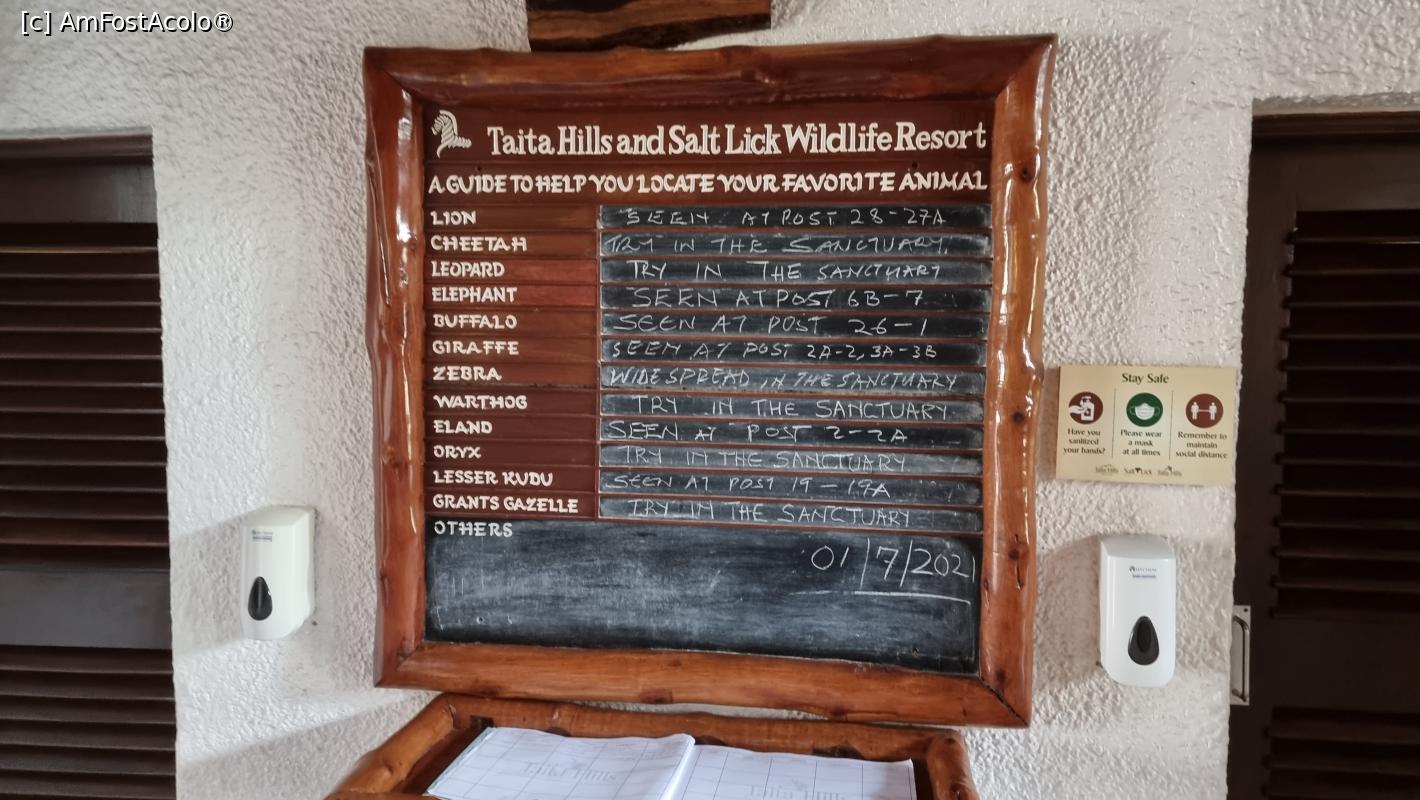 [c] AmFostAcolo®
Taita Hills and Salt Lick Wildlife Resort
A GUIDE TO HELP YOU LOCATE YOUR FAVORITE ANIMAL
LION SEEN AT POST 28-27A
CHEETAH TRY IN THE SANCTUARY.
LEOPARD TRY IN THE SANCTUARY
ELEPHANT SEEN AT POST 6B-7
BUFFALO SEEN AT POST 26-1
GIRAFFE SEEN AT POST 2A-2, 3A-3B
ZEBRA WIDE SPREAD IN THE SANCTUARY
WARTHOG TRY IN THE SANCTUARY.
ELAND SEEN AT POST 2-2A
ORYX TRY IN THE SANCTUARY
LESSER KUDU SEEN AT POST 19-19A
GRANTS GAZELLE TRY IN THE SANCTUARY
OTHERS
01/7/2021
Stay Safe
Have you sanitized your hands?
Please wear a mask at all times
Remember to maintain social distance
Taita Hills Salt Lick Taita Hills
Taita Hills
Taita Hills